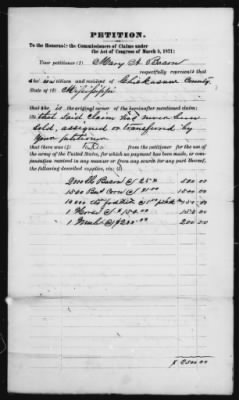 PETITION.
To the Honorable the Commissioners of Claims under
the Act of Congress of March 3, 1871:
Your petitioner Mary A.
respectfully represents that
she is a citizen and resident of Chickasaw County
State of Mississippi
that she is the original owner of the hereinafter mentioned claim:
that said claim has never been
sold, assigned or transferred by
your petitioner
that there was taken from the petitioner for the use of the
army of the United States, for which no payment has been made, or com-
pensation received in any manner or from any source for any part thereof,
the following described supplies, viz:
2000 lbs Bacon @ 25¢ 500.00
1500 But Corn @ $1.00 1500.00
fodder @ 150.00
1 Horse @ $150.00 150.00
1 Mule @ $200.00 200.00
$2500.00